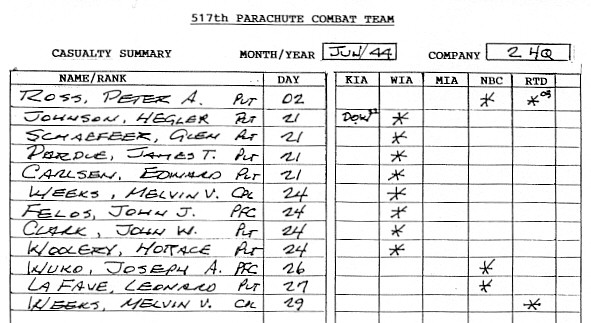 517th PARACHUTE COMBAT TEAM
CASUALTY SUMMARY MONTH/YEAR JUN/44 COMPANY 2 HQ
NAME/RANK DAY KIA WIA MIA NBC RTD
ROSS, PETER A. PVT 02 * *03
JOHNSON, HEGLER PVT 21 DOW *
SCHAEFEER, GLEN PVT 21 *
PERDUE, JAMES T. PVT 21 *
CARLSEN, EDWARD PVT 21 *
WEEKS, MELVIN V. CPL 24 *
FELOS, JOHN J. PFC 24 *
CLARK, JOHN W. PVT 24 *
WOOLERY, HORACE PVT 24 *
WUKO, JOSEPH A. PFC 26 *
LA FAVE, LEONARD PVT 27 *
WEEKS, MELVIN V. CPL 29 *